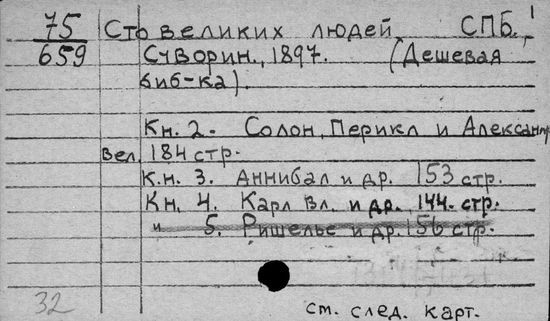 75 Сто великих людей. СПБ. 1
659 Суворин., 1897. (Дешевая
биб-ка).
Кн. 2. Солон, Перикл и Александр
Вел. 184 стр.
Кн. 3. Аннибал и др. 153 стр.
Кн. 4. Карл Вл. и др. 144 стр.
" 5. Ришелье и др. 156 стр.
32
см. след. карт.